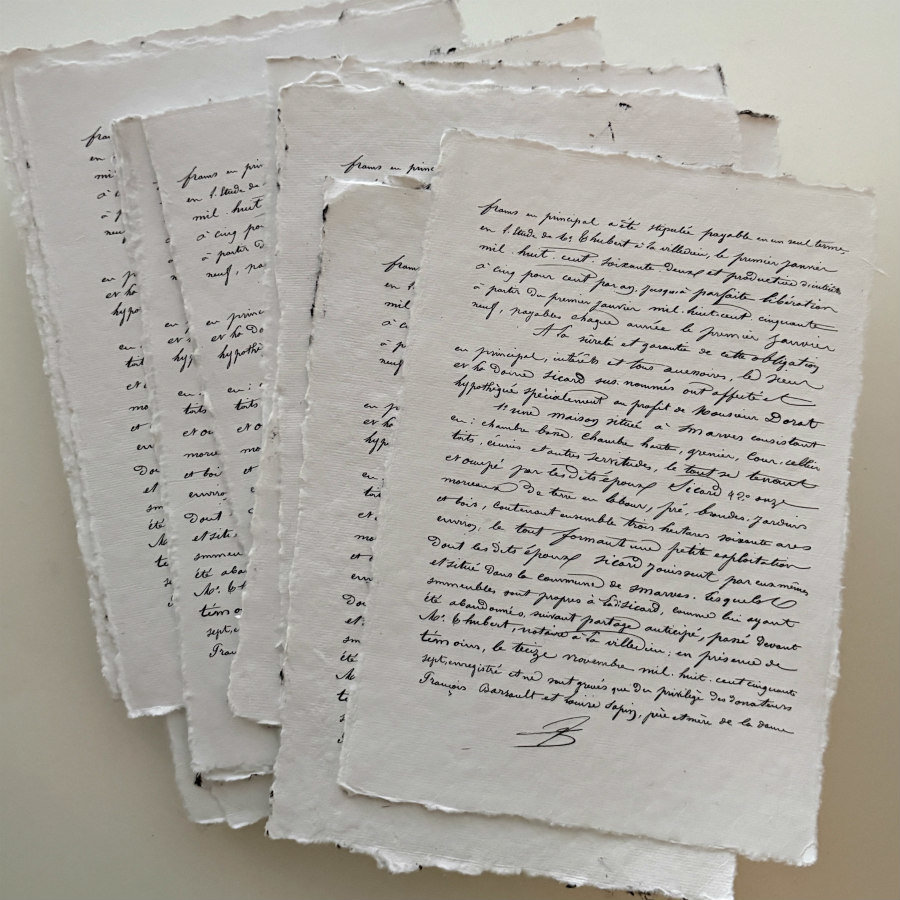 frans en principal a été stipulée payable en un seul terme,
en l'Etude de Me Chubert à la villedieu, le premier janvier
mil. huit. cent. soixante Deux et productive d'intérêts
à cinq pour cent par an, jusqu'à parfaite libération
à partir du premier janvier mil. huit. cent cinquante
neuf, payables chaque année le premier janvier
A la sûreté et garantie de cette obligation
en principal, intérêts et tous accessoires, le sieur
et la Dame Sicard sus. nommés ont affecté et
hypothéqué spécialement au profit de Monsieur Dorat
une maison située à Smarves consistant
en: chambre basse. Chambre haute, grenier, Cour, cellier
toits, écuries et autres servitudes, le tout se tenant
et occupé par les Dits époux Sicard 2º onze
morceaux De terre en labour, pré, brandes, jardins
et bois, contenant ensemble trois hectares soixante ares
environ, le tout formant une petite exploitation
Dont les Dits époux Sicard jouissent par eux mêmes
et située Dans la commune de Smarves. Lesquels
immeubles sont propres à la Sicard, comme lui ayant
été abandonnés, suivant partage anticipé, passé Devant
Me. Chubert, notaire à la villedieu; en présence de
témoins, le treize novembre mil. huit. cent cinquante
sept, enregistré et ne sont grevés que Du privilège des Donateurs
François Barsault et Louise Sapin, père et mère de la dame